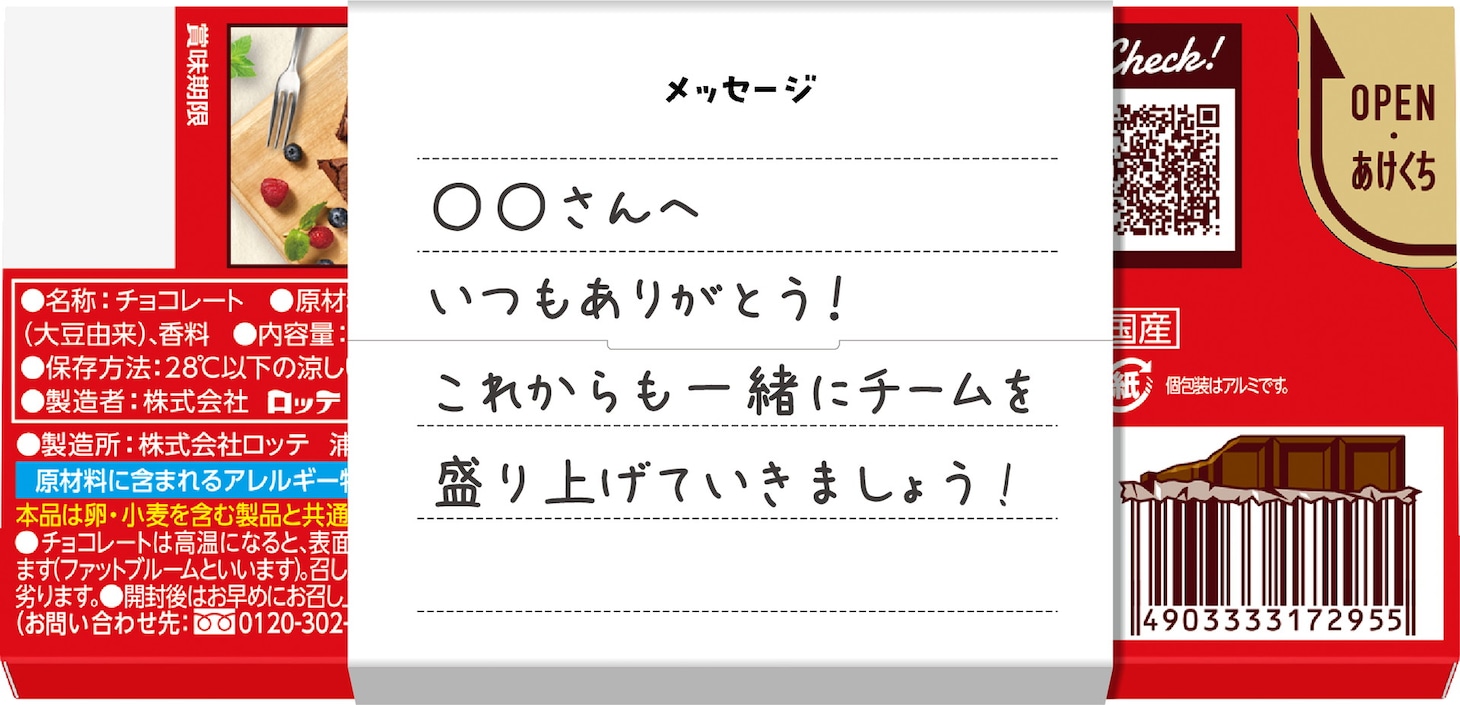 賞味期限
●名称：チョコレート　●原材
（大豆由来）、香料　●内容量：
●保存方法：28℃以下の涼し
●製造者：株式会社 ロッテ
●製造所：株式会社ロッテ　浦
原材料に含まれるアレルギー物
本品は卵・小麦を含む製品と共通
●チョコレートは高温になると、表面
ます（ファットブルームといいます）。召し
劣ります。●開封後はお早めにお召し上
（お問い合わせ先：0120-302-
メッセージ
〇〇さんへ
いつもありがとう！
これからも一緒にチームを
盛り上げていきましょう！
Check!
OPEN
・
あけくち
国産
紙 個包装はアルミです。
4903333172955